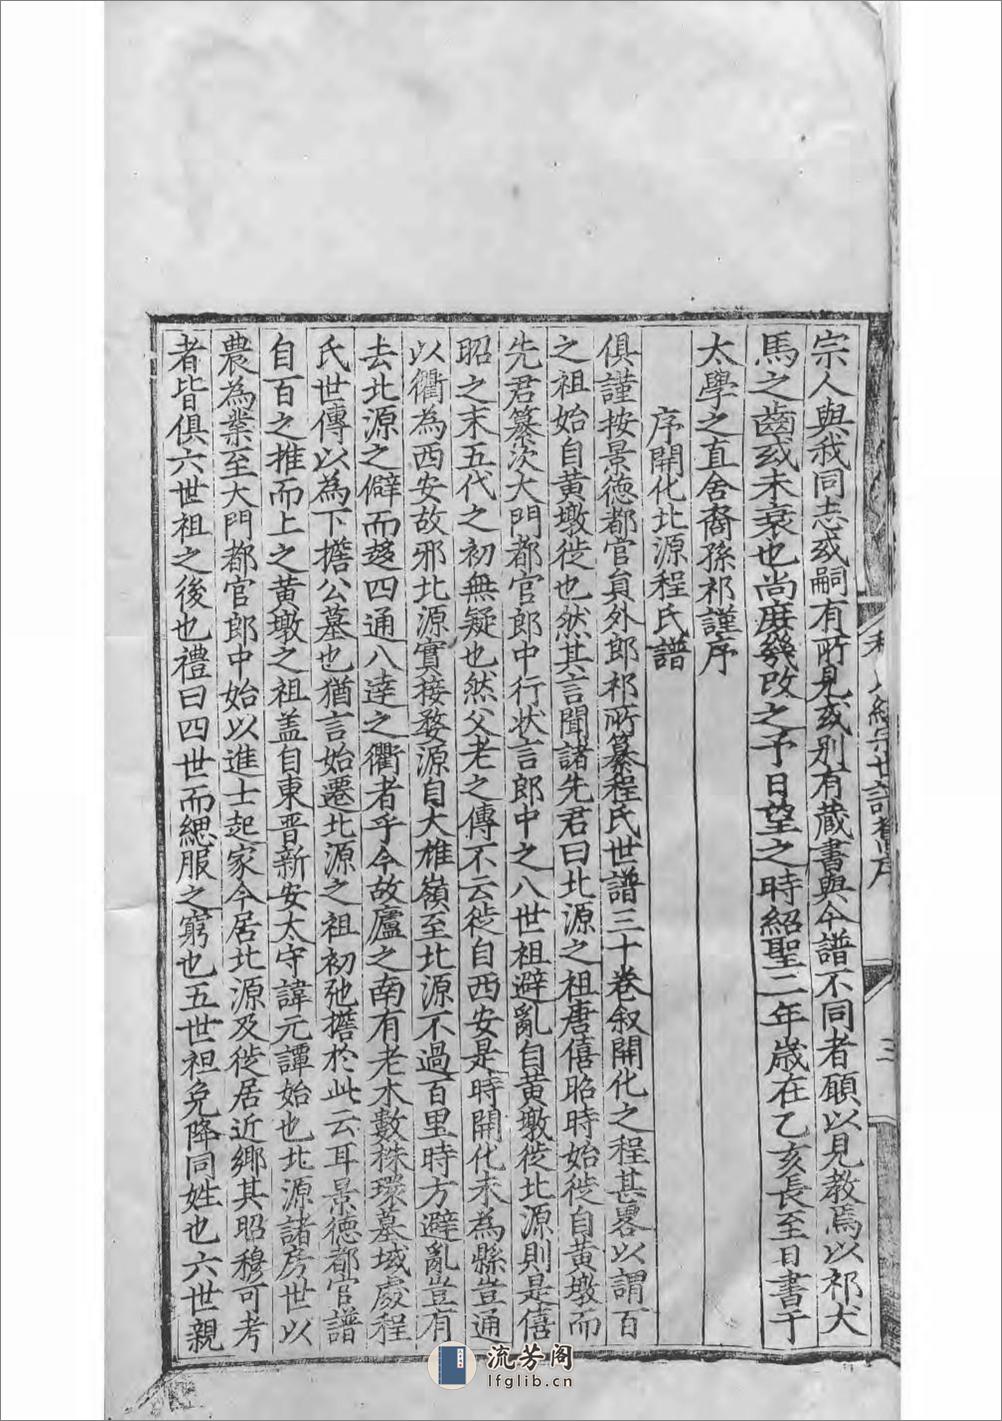 宗人與我同志或嗣有所見或别有藏書與今譜不同者願以見教焉以祁犬
馬之齒或未衰也尚庶幾改之予日望之時紹聖二年歲在乙亥長至日書于
太學之直舍裔孫祁謹序
序開化北源程氏譜
俱謹按景德都官員外郎祁所纂程氏世譜三十卷叙開化之程甚畧以謂百
之祖始自黄墩徙也然其言聞諸先君曰北源之祖唐僖昭時始徙自黄墩而
先君纂次大門都官郎中行状言郎中之八世祖避亂自黄墩徙北源則是僖
昭之末五代之初無疑也然父老之傳不云徙自西安是時開化未為縣豈通
以衢為西安故邪北源實接婺源自大雄嶺至北源不過百里時方避亂豈有
去北源之僻而趍四通八逹之衢者乎今故廬之南有老木數株環墓域處程
氏世傳以為下擔公墓也猶言始遷北源之祖初弛擔於此云耳景德都官譜
自百之推而上之黄墩之祖盖自東晋新安太守諱元譚始也北源諸房世以
農為業至大門都官郎中始以進士起家今居北源及徙居近鄉其昭穆可考
者皆俱六世祖之後也禮曰四世而緦服之窮也五世袒免降同姓也六世親
宗世譜舊序
三
流芳阁
lfglib.cn